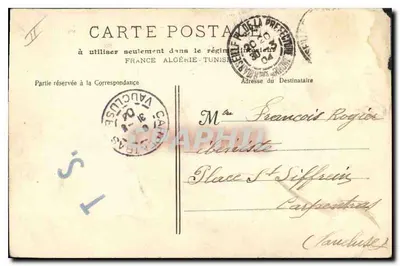 II
CARTE POSTALE
à utiliser seulement dans le régime intérieur
FRANCE ALGÉRIE-TUNISIE
PL. DE LA PREFECTURE
Partie réservée à la Correspondance
Adresse du Destinataire
CARPENTRAS
VAUCLUSE
François Rogier
Ebéniste
Place St Siffrein
Carpentras
(Vaucluse)
T. S.